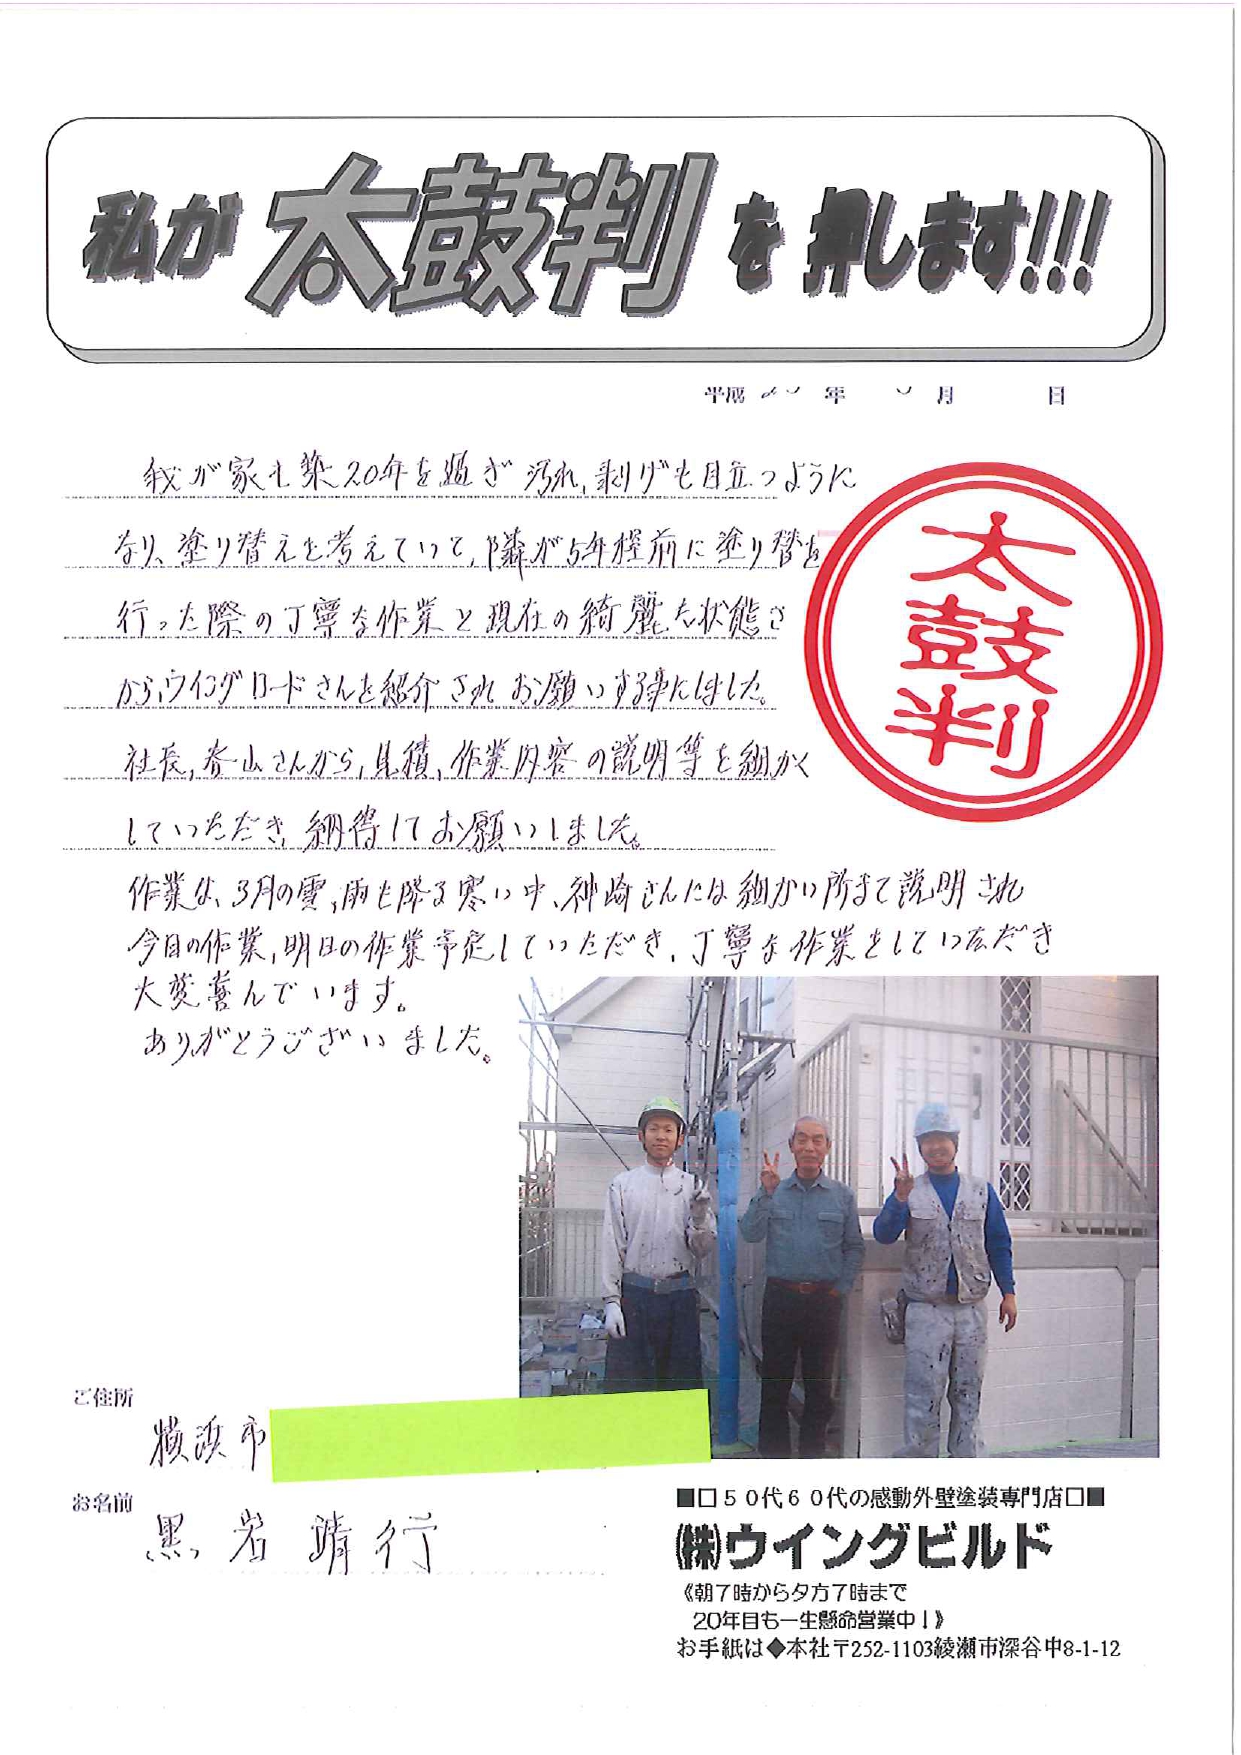 私が太鼓判を押します!!!
平成 年 月 日
我が家も築20年を過ぎ汚れ,剥げも目立つように
なり、塗り替えを考えていて,隣が5年程前に塗り替を
行った際の丁寧な作業と現在の綺麗な状態さ
から,ウイングロードさんを紹介されお願いする事にしました。
社長,春山さんから,見積,作業内容の説明等を細かく
していただき,納得してお願いしました。
太鼓判
作業は,3月の雪,雨も降る寒い中,神崎さんには細かい所まで説明され
今日の作業,明日の作業予定していただき,丁寧な作業をしていただき
大変喜んでいます。
ありがとうございました。
ご住所
横浜市
お名前
黒岩靖行
■□50代60代の感動外壁塗装専門店□■
㈱ウイングビルド
《朝7時から夕方7時まで
20年目も一生懸命営業中！》
お手紙は◆本社〒252-1103綾瀬市深谷中8-1-12